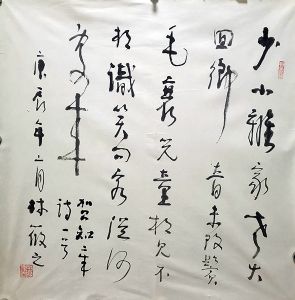 少小離家老大
回鄉音未改鬢
毛衰兒童相見不
相識笑問客從何
處来
賀知章
詩一首
庚辰年月林筱之